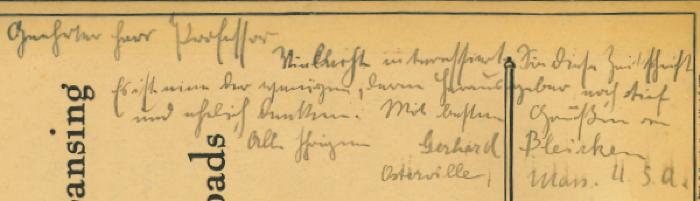 Geehrter Herr Professor
Vielleicht interessiert Sie diese Zeitschrift
Es ist eine der wenigen, deren Herausgeber noch tief
und ehrlich denken. Mit besten Grüßen an
Alle Ihrigen Gerhard Bleicken
Osterville, Mass. U.S.A.
ansing
oads